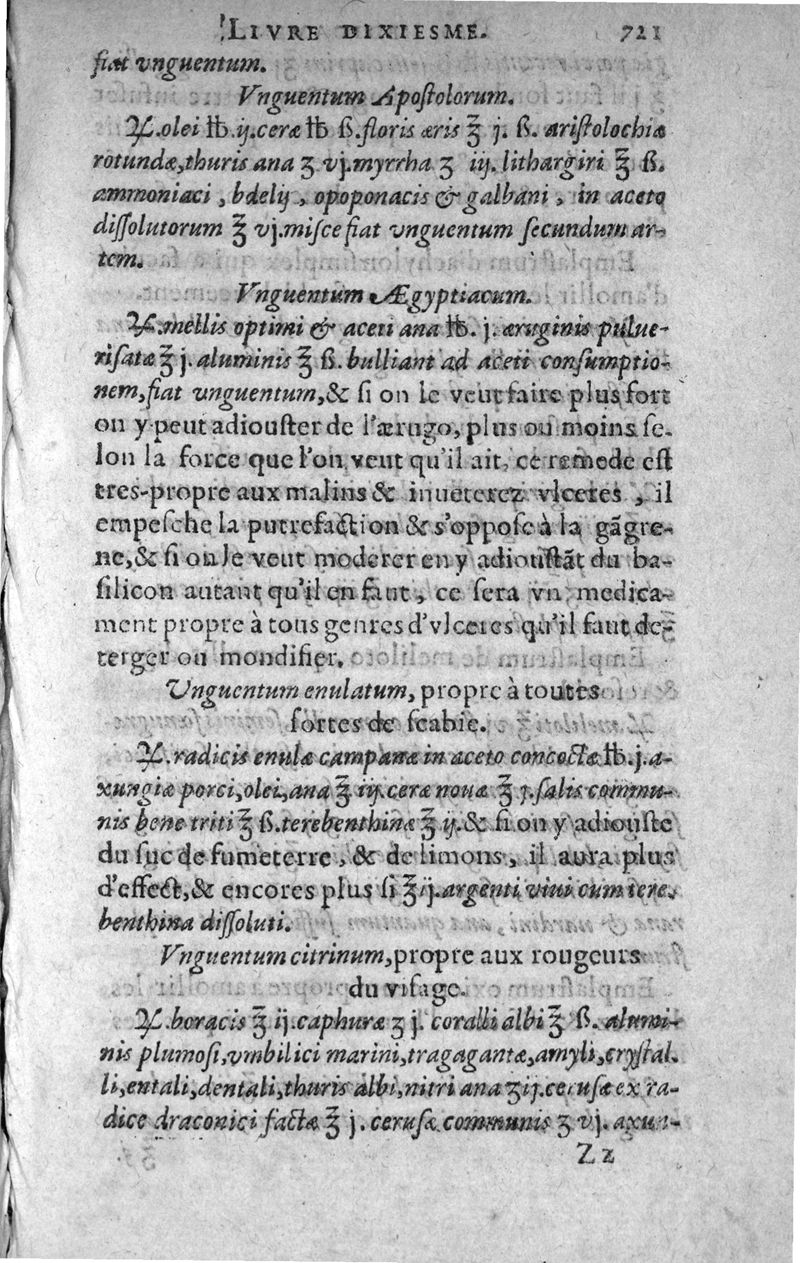 LIVRE DIXIESME. 721
fiat vnguentum.
Vnguentum Apoſtolorum.
℞.olei ℔.ij.ceræ ℔ ß.floris æris ℥ j. ß. ariſtolochiæ
rotundæ,thuris ana ʒ vj.myrrha ʒ iij. lithargiri ℥ ß.
ammoniaci , bdelij , opoponacis & galbani , in aceto
diſſolutorum ℥ vj.miſce fiat vnguentum ſecundum ar-
tem.
Vnguentum Ægyptiacum.
℞.mellis optimi & aceti ana ℔. j. æruginis pulue-
riſatæ ℥ j. aluminis ℥ ß. bulliant ad aceti conſumptio-
nem,fiat vnguentum,& ſi on le veut faire plus fort
on y peut adiouſter de l'ærugo, plus ou moins ſe-
lon la force que l'on veut qu'il ait, ce remede eſt
tres-propre aux malins & inueterez vlceres , il
empeſche la putrefaction & s'oppoſe à la gãgre-
ne,& ſi on le veut moderer en y adiouſtãt du ba-
ſilicon autant qu'il en faut , ce ſera vn medica-
ment propre à tous genres d'vlceres qu'il faut de-
terger ou mondifier.
Vnguentum enulatum, propre à toutes
ſortes de ſcabie.
℞.radicis enulæ campanæ in aceto concoctæ ℔.j.a-
xungiæ porci,olei,ana ℥ iij.ceræ nouæ ℥ j.ſalis commu-
nis bene triti ℥ ß.terebenthinæ ℥ ij.& ſi on y adiouſte
du ſuc de fumeterre , & de limons, il aura plus
d'effect,& encores plus ſi ℥ ij.argenti viui cum tere-
benthina diſſoluti.
Vnguentum citrinum,propre aux rougeurs
du viſage.
℞.boracis ℥ ij.caphuræ ʒ j. coralli albi ℥ ß. alumi-
nis plumoſi,vmbilici marini,tragagantæ,amyli,cryſtal-
li,entali,dentali,thuris albi,nitri ana ʒ ij.ceruſæ ex ra-
dice draconici factæ ℥ j. ceruſæ communis ʒ vj. axun-
Zz